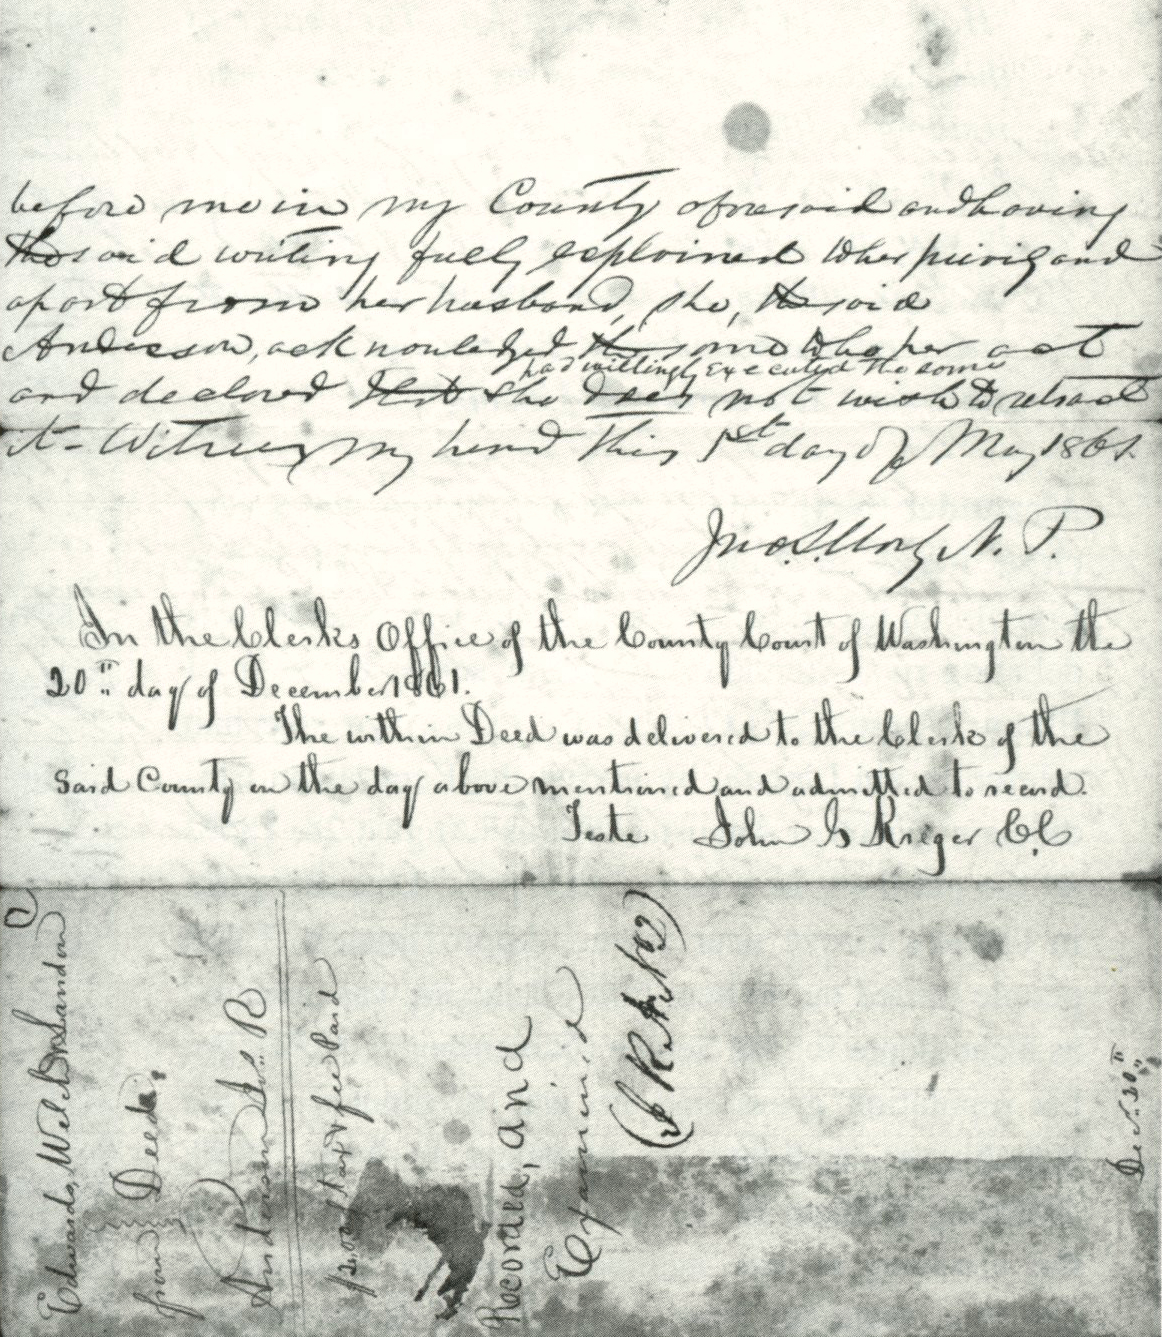 before me in my County aforesaid and having
the said writing fully explained to her privily and
apart from her husband, she, the said
Anderson, acknowledged the same to be her act
had willingly executed the same
and declared that she does not wish to retract
it. Witness my hand this 1st day of May 1861.
Jno. S. N. P.
In the Clerks Office of the County Court of Washington the
20th day of December 1861.
The within Deed was delivered to the Clerk of the
said County on the day above mentioned and admitted to record.
Teste John G Kreger C.C
Edwards, Welch & Sandoe
from Deed.
Anderson R
$2.00 Tax & fee Paid
Recorded, and
Examined
Decr. 20th